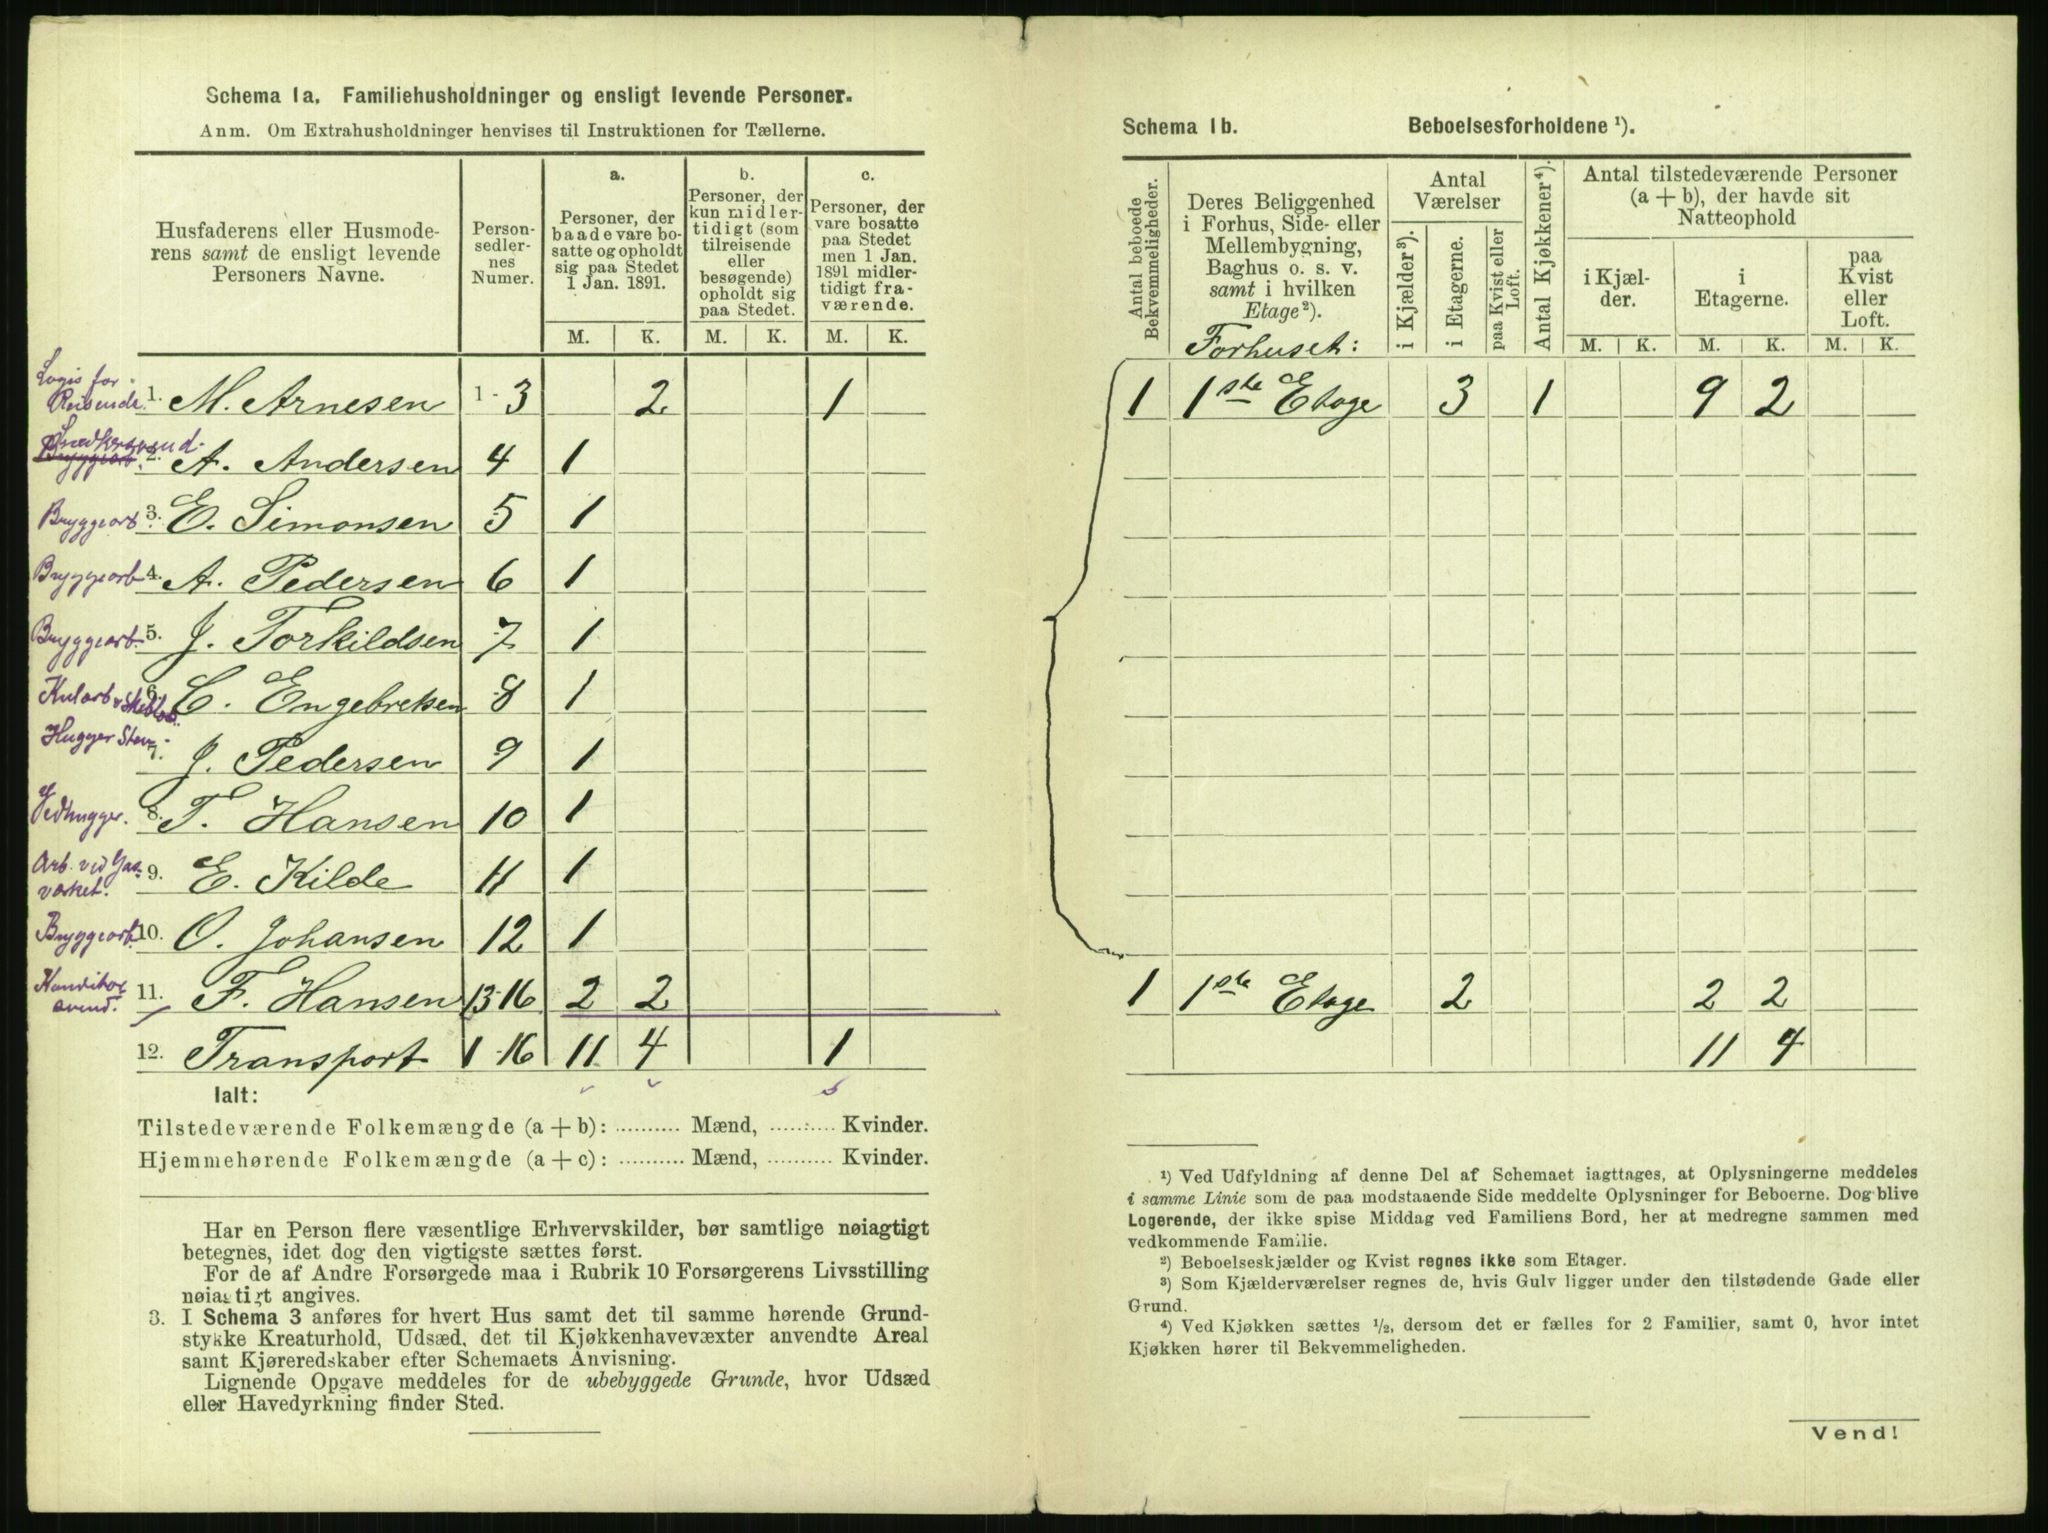 Schema 1a. Familiehusholdninger og ensligt levende Personer.
Anm. Om Extrahusholdninger henvises til Instruktionen for Tællerne.
Husfaderens eller Husmoderens samt de ensligt levende Personers Navne.
Personsedlernes Numer.
a.
Personer, der baade vare bosatte og opholdt sig paa Stedet 1 Jan. 1891.
b.
Personer, der kun midlertidigt (som tilreisende eller besøgende) opholdt sig paa Stedet.
c.
Personer, der vare bosatte paa Stedet men 1 Jan. 1891 midlertidigt fraværende.
M. K. M. K. M. K.
Logis for Reisende. 1. M. Arnesen 1-3 2 1
Snedkersvend. Bryggearb. 2. A. Andersen 4 1
Bryggearb. 3. E. Simonsen 5 1
Bryggearb. 4. A. Pedersen 6 1
Bryggearb. 5. J. Torkildsen 7 1
Kularb 6. C. Engebretsen 8 1
Hugger Sten. 7. J. Pedersen 9 1
Vedhugger. 8. T. Hansen 10 1
Arb. ved Gasværket. 9. E. Kilde 11 1
Bryggearb. 10. O. Johansen 12 1
11. F. Hansen 13-16 2 2
12. Transport 1-16 11 4 1
Ialt:
Tilstedeværende Folkemængde (a + b): .......... Mænd, .......... Kvinder.
Hjemmehørende Folkemængde (a + c): .......... Mænd, .......... Kvinder.
Har en Person flere væsentlige Erhvervskilder, bør samtlige nøiagtigt
betegnes, idet dog den vigtigste sættes først.
For de af Andre Forsørgede maa i Rubrik 10 Forsørgerens Livsstilling
nøiagtigt angives.
3. I Schema 3 anføres for hvert Hus samt det til samme hørende Grund-
stykke Kreaturhold, Udsæd, det til Kjøkkenhavevæxter anvendte Areal
samt Kjøreredskaber efter Schemaets Anvisning.
Lignende Opgave meddeles for de ubebyggede Grunde, hvor Udsæd
eller Havedyrkning finder Sted.
Schema 1b. Beboelsesforholdene ¹).
Antal beboede Bekvemmeligheder.
Deres Beliggenhed i Forhus, Side- eller Mellembygning, Baghus o. s. v. samt i hvilken Etage ²).
Forhuset:
Antal Værelser
i Kjælder ³).
i Etagerne.
paa Kvist eller Loft.
Antal Kjøkkener ⁴).
Antal tilstedeværende Personer (a + b), der havde sit Natteophold
i Kjælder.
i Etagerne.
paa Kvist eller Loft.
M. K. M. K. M. K.
1 1ste Etage 3 1 9 2
1 1ste Etage 2 2 2
11 4
¹) Ved Udfyldning af denne Del af Schemaet iagttages, at Oplysningerne meddeles
i samme Linie som de paa modstaaende Side meddelte Oplysninger for Beboerne. Dog blive
Logerende, der ikke spise Middag ved Familiens Bord, her at medregne sammen med
vedkommende Familie.
²) Beboelseskjælder og Kvist regnes ikke som Etager.
³) Som Kjælderværelser regnes de, hvis Gulv ligger under den tilstødende Gade eller
Grund.
⁴) Ved Kjøkken sættes ½, dersom det er fælles for 2 Familier, samt 0, hvor intet
Kjøkken hører til Bekvemmeligheden.
Vend!